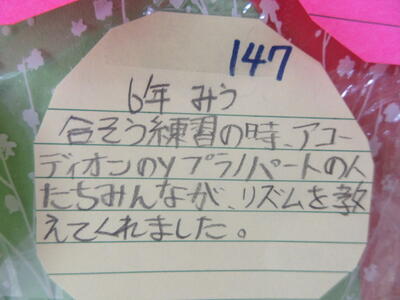 147
6年 みう
合そう練習の時、アコー
ディオンのソプラノパートの人
たちみんなが、リズムを教
えてくれました。